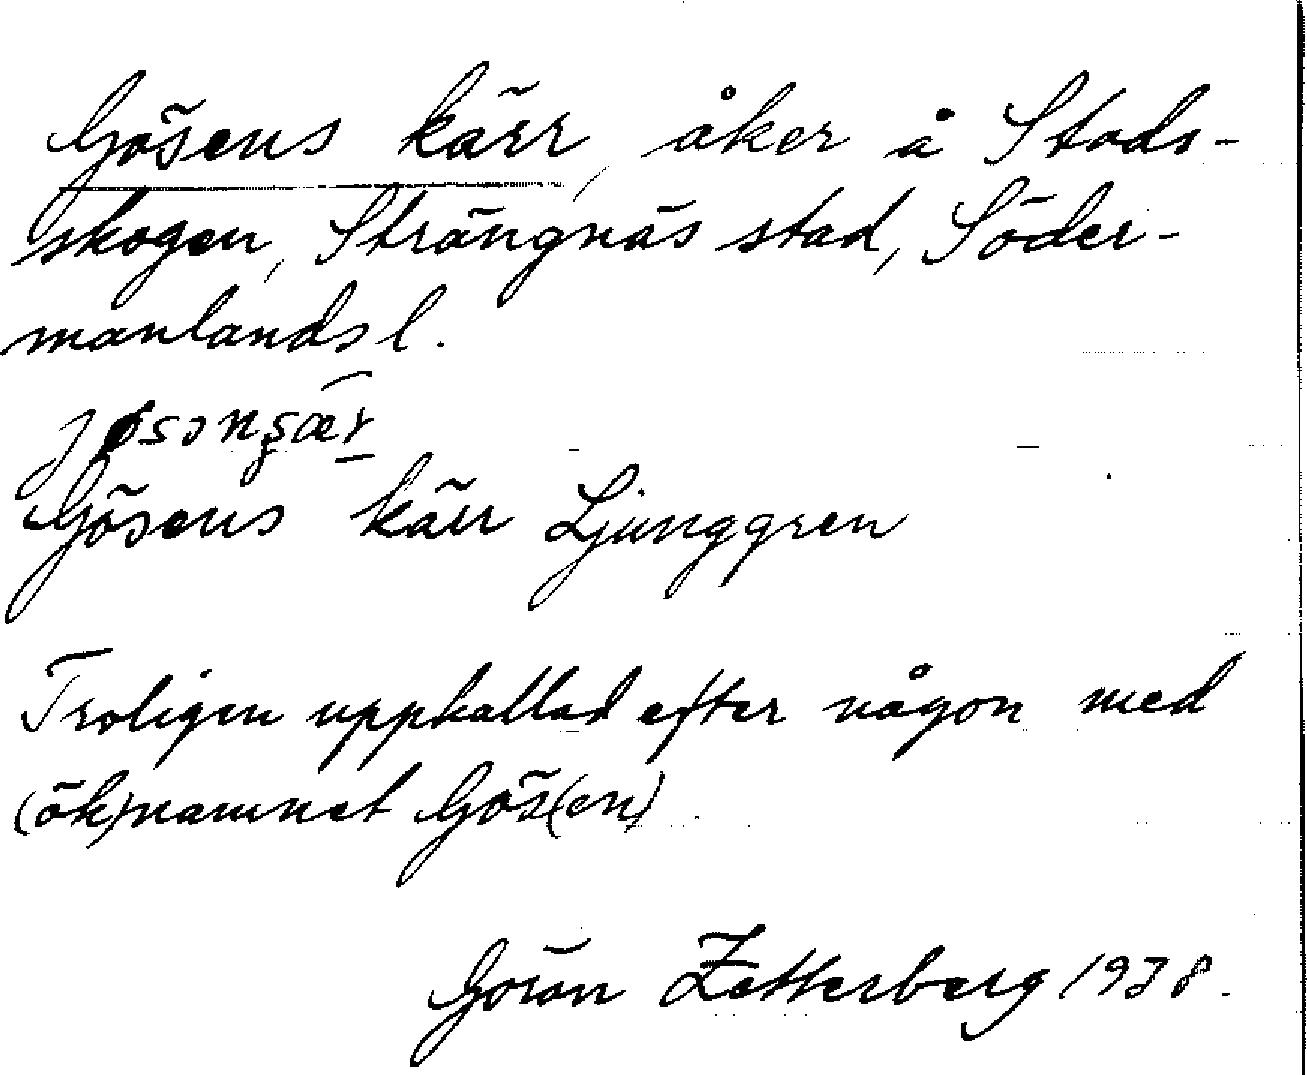 Gösens kärr, åker å Stads-
skogen, Strängnäs stad, Söder-
manlands l.
Gösens kärr Ljunggren
Troligen uppkallad efter någon med
(ök)namnet Gös(en)
Göran Zetterberg 1938.